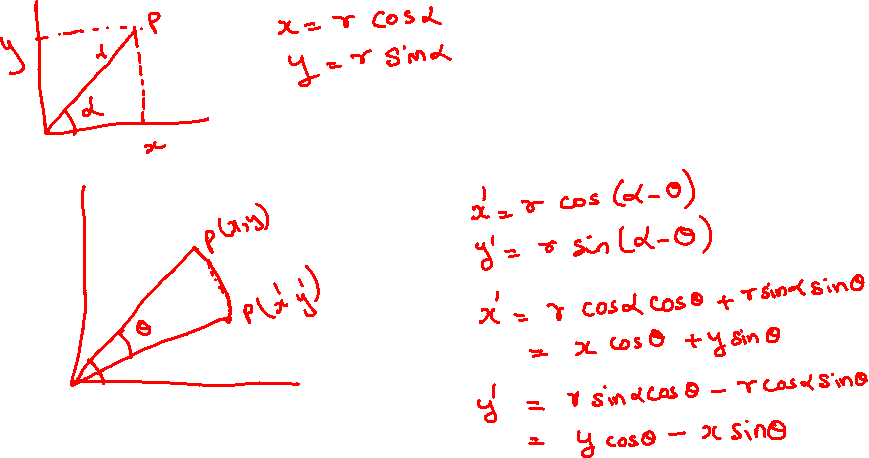 x = r cosα
y = r sinα
P
y
r
α
x
x' = r cos (α-θ)
y' = r sin (α-θ)
P(x,y)
P(x' y')
θ
x' = r cosα cosθ + r sinα sinθ
= x cosθ + y sinθ
y' = r sinα cosθ - r cosα sinθ
= y cosθ - x sinθ